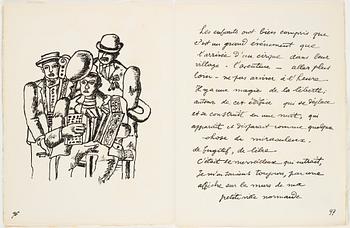 Les enfants ont bien compris que
c'est un grand événement que
l'arrivée d'un cirque dans leur
village. l'aventure — aller plus
loin — ne pas arriver à l'heure
Il y a une magie de la liberté;
autour de cet édifice qui se déplace
et se construit en une nuit, qui
apparaît et disparaît comme quelque
chose de miraculeux,
de fugitif, de libre
C'était le merveilleux qui entrait
Je m'en suis toujours, par une
affiche sur le murs de ma
petite ville normande
96
97